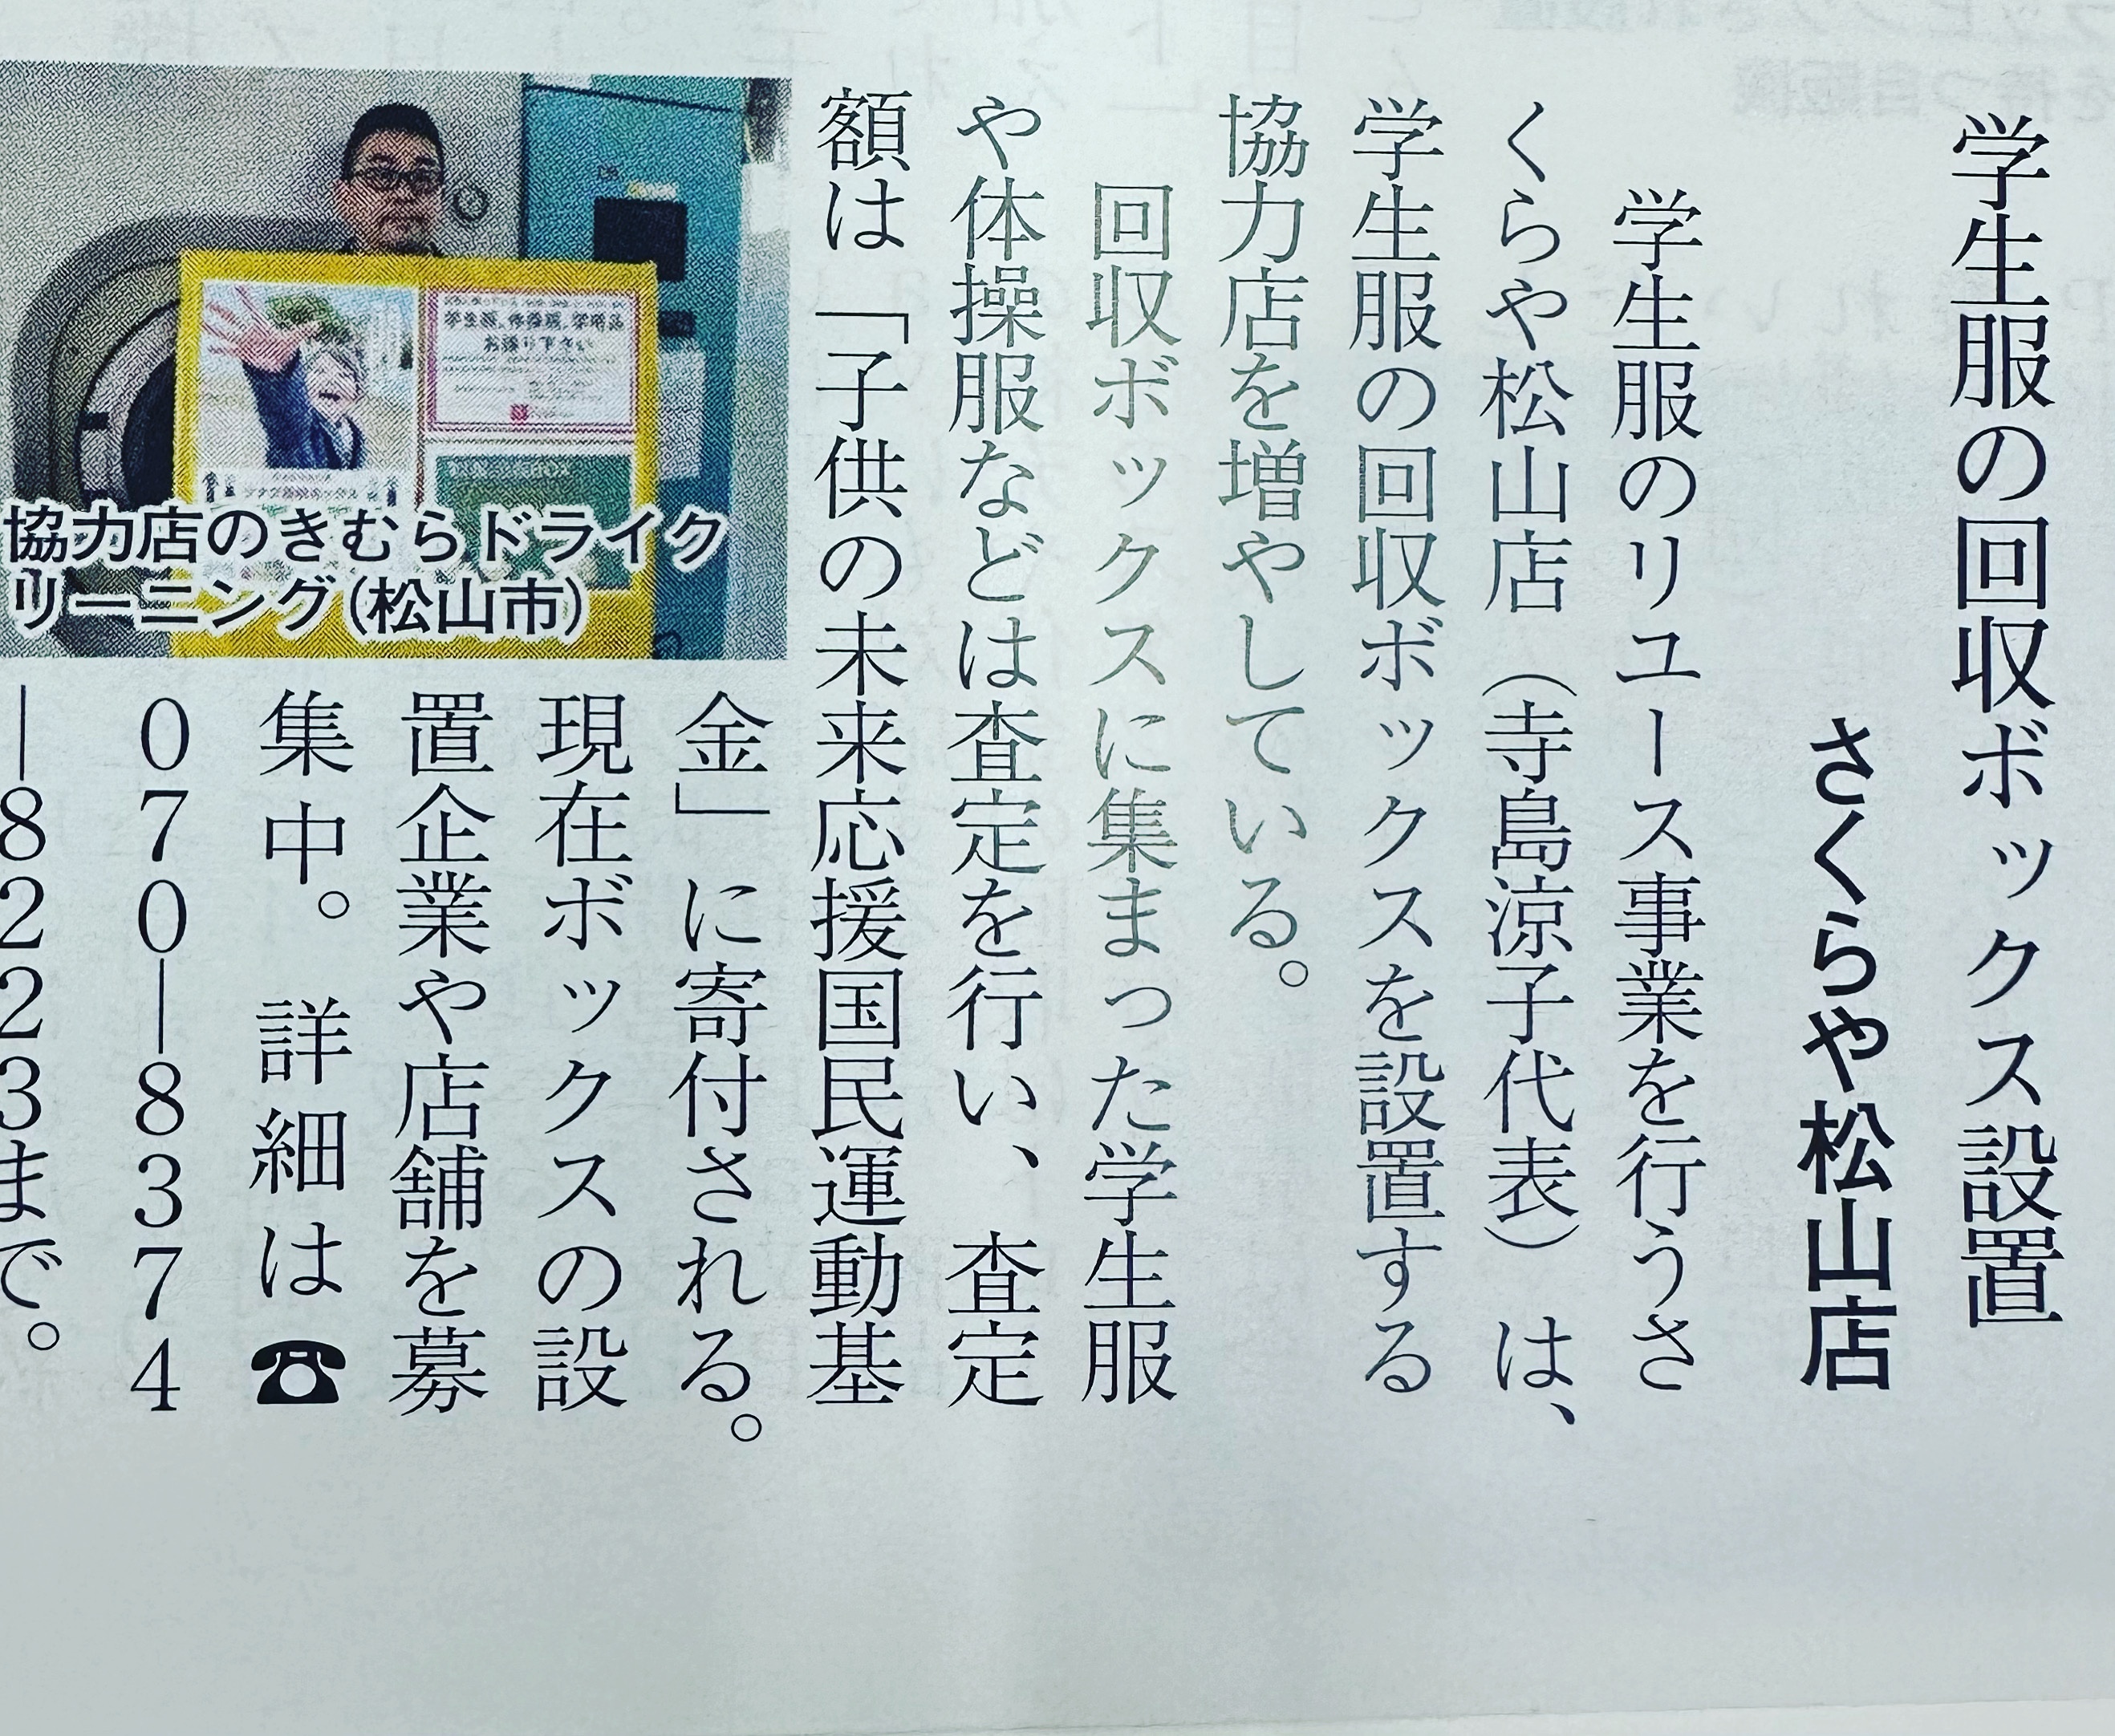 学生服の回収ボックス設置
さくらや松山店
学生服のリユース事業を行うさ
くらや松山店（寺島涼子代表）は、
学生服の回収ボックスを設置する
協力店を増やしている。
回収ボックスに集まった学生服
や体操服などは査定を行い、査定
額は「子供の未来応援国民運動基
金」に寄付される。
現在ボックスの設
置企業や店舗を募
集中。詳細は☎
070―8374
―8223まで。
学生服、体操服、学用品
お譲り下さい
協力店のきむらドライク
リーニング(松山市)